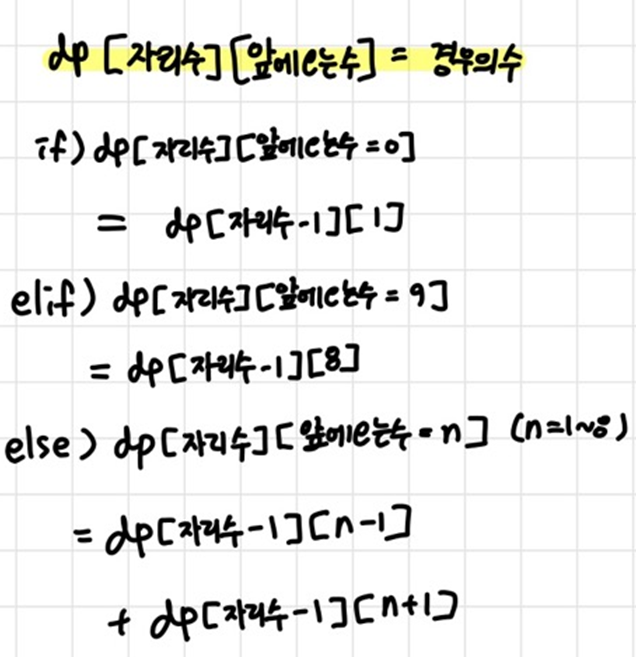 dp [자리수][앞에오는수] = 경우의수
if) dp[자리수][앞에오는수=0]
= dp[자리수-1][1]
elif) dp[자리수][앞에오는수=9]
= dp[자리수-1][8]
else) dp[자리수][앞에오는수=n] (n=1~8)
= dp[자리수-1][n-1]
+ dp[자리수-1][n+1]